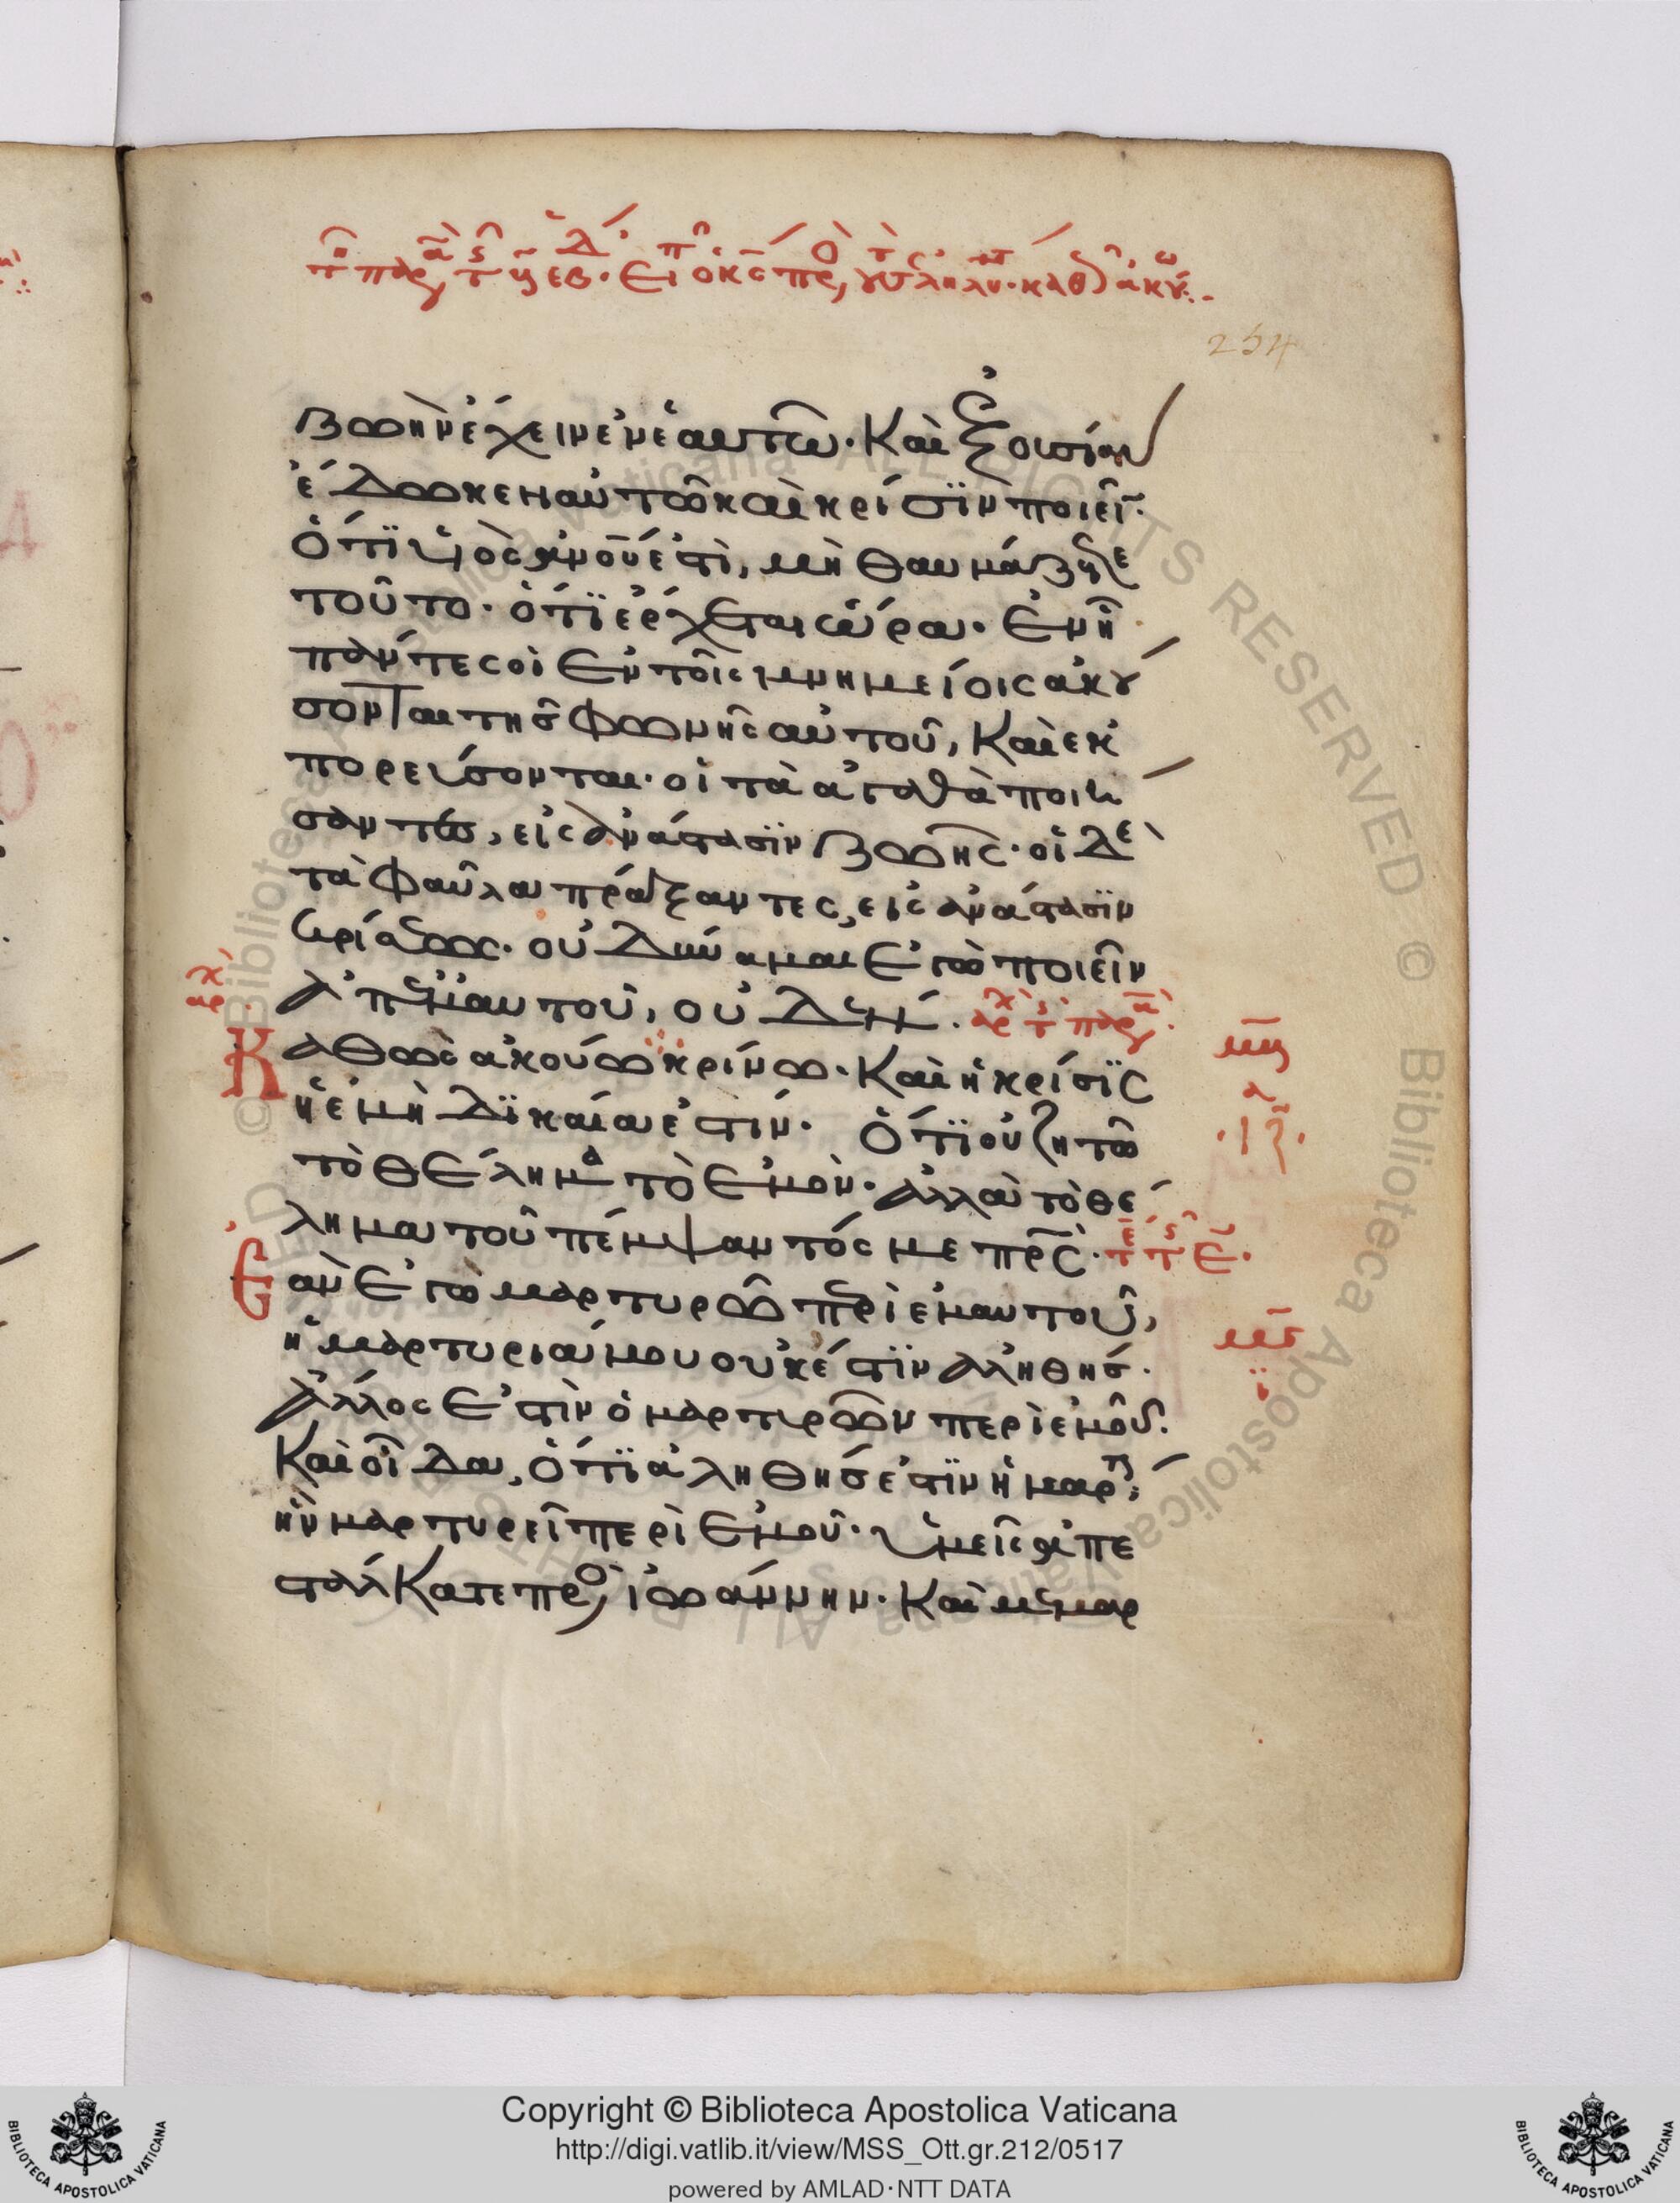 254
ζωὴν ἔχειν ἐν ἑαυτῶ. Καὶ ἐξουσίαν
ἔδωκεν αὐτῶ καὶ κρίσϊν ποιεῖν.
ὅτϊ υἱὸς ἀνου ἐστὶ, μὴ θαυμάζετε
τοῦτο. ὅτϊ ἔρχεται ὥρα. ἐν ἧ
πάντες οἱ ἐν τοῖς μνημείοις ἀκού
σονται τῆς φωνῆς αὐτοῦ, Καὶ ἐκ
πορεύσονται. οἱ τὰ ἀγαθὰ ποιή
σαντες, εἰς ἀνάστασϊν ζωῆς. οἱ δὲ
τὰ φαῦλα πράξαντες, εἰς ἀνάστασϊν
κρίσεως. οὐ δύναμαι ἐγὼ ποιεῖν
ἀπ ἐμαυτοῦ, οὐδέν.
Καθὼς ἀκούω κρίνω. Καὶ ἡ κρίσϊς
ἡ ἐμὴ δϊκαία ἐστίν. ὅτϊ οὐ ζητῶ
τὸ θέλημα τὸ ἐμὸν. ἀλλὰ τὸ θέ
λημα τοῦ πέμψαντός με πρς.
Ἐὰν ἐγὼ μαρτυρῶ περὶ ἐμαυτοῦ,
ἡ μαρτυρία μου οὐκ ἔστϊν ἀληθής.
ἄλλος ἐστὶν ὁ μαρτυρῶν περὶ ἐμοῦ.
Καὶ οἶδα, ὅτϊ ἀληθής ἐστϊν ἡ μαρτ
ἣν μαρτυρεῖ περὶ ἐμοῦ. ὑμεῖς ἀπε
στάλκατε πρὸς ἰωάννην. Καὶ μεμαρ
Copyright © Biblioteca Apostolica Vaticana
http://digi.vatlib.it/view/MSS_Ott.gr.212/0517
powered by AMLAD·NTT DATA